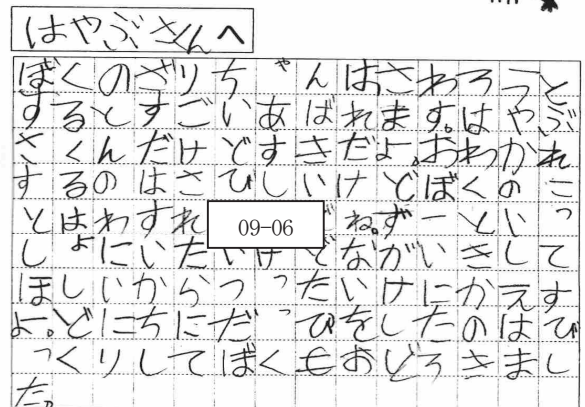 はやぶさくんへ
ぼくのざりちゃんはさわろうと
するとすごいあばれます。はやぶ
さくんだけどすきだよ。おわかれ
するのはさびしいけどぼくのこ
とはわすれ 09-06 ね。ずーといっ
しょにいたいけどながいきして
ほしいからつったいけにかえす
よ。どにちにだっぴをしたのはび
っくりしてぼくもおどろきまし
た。